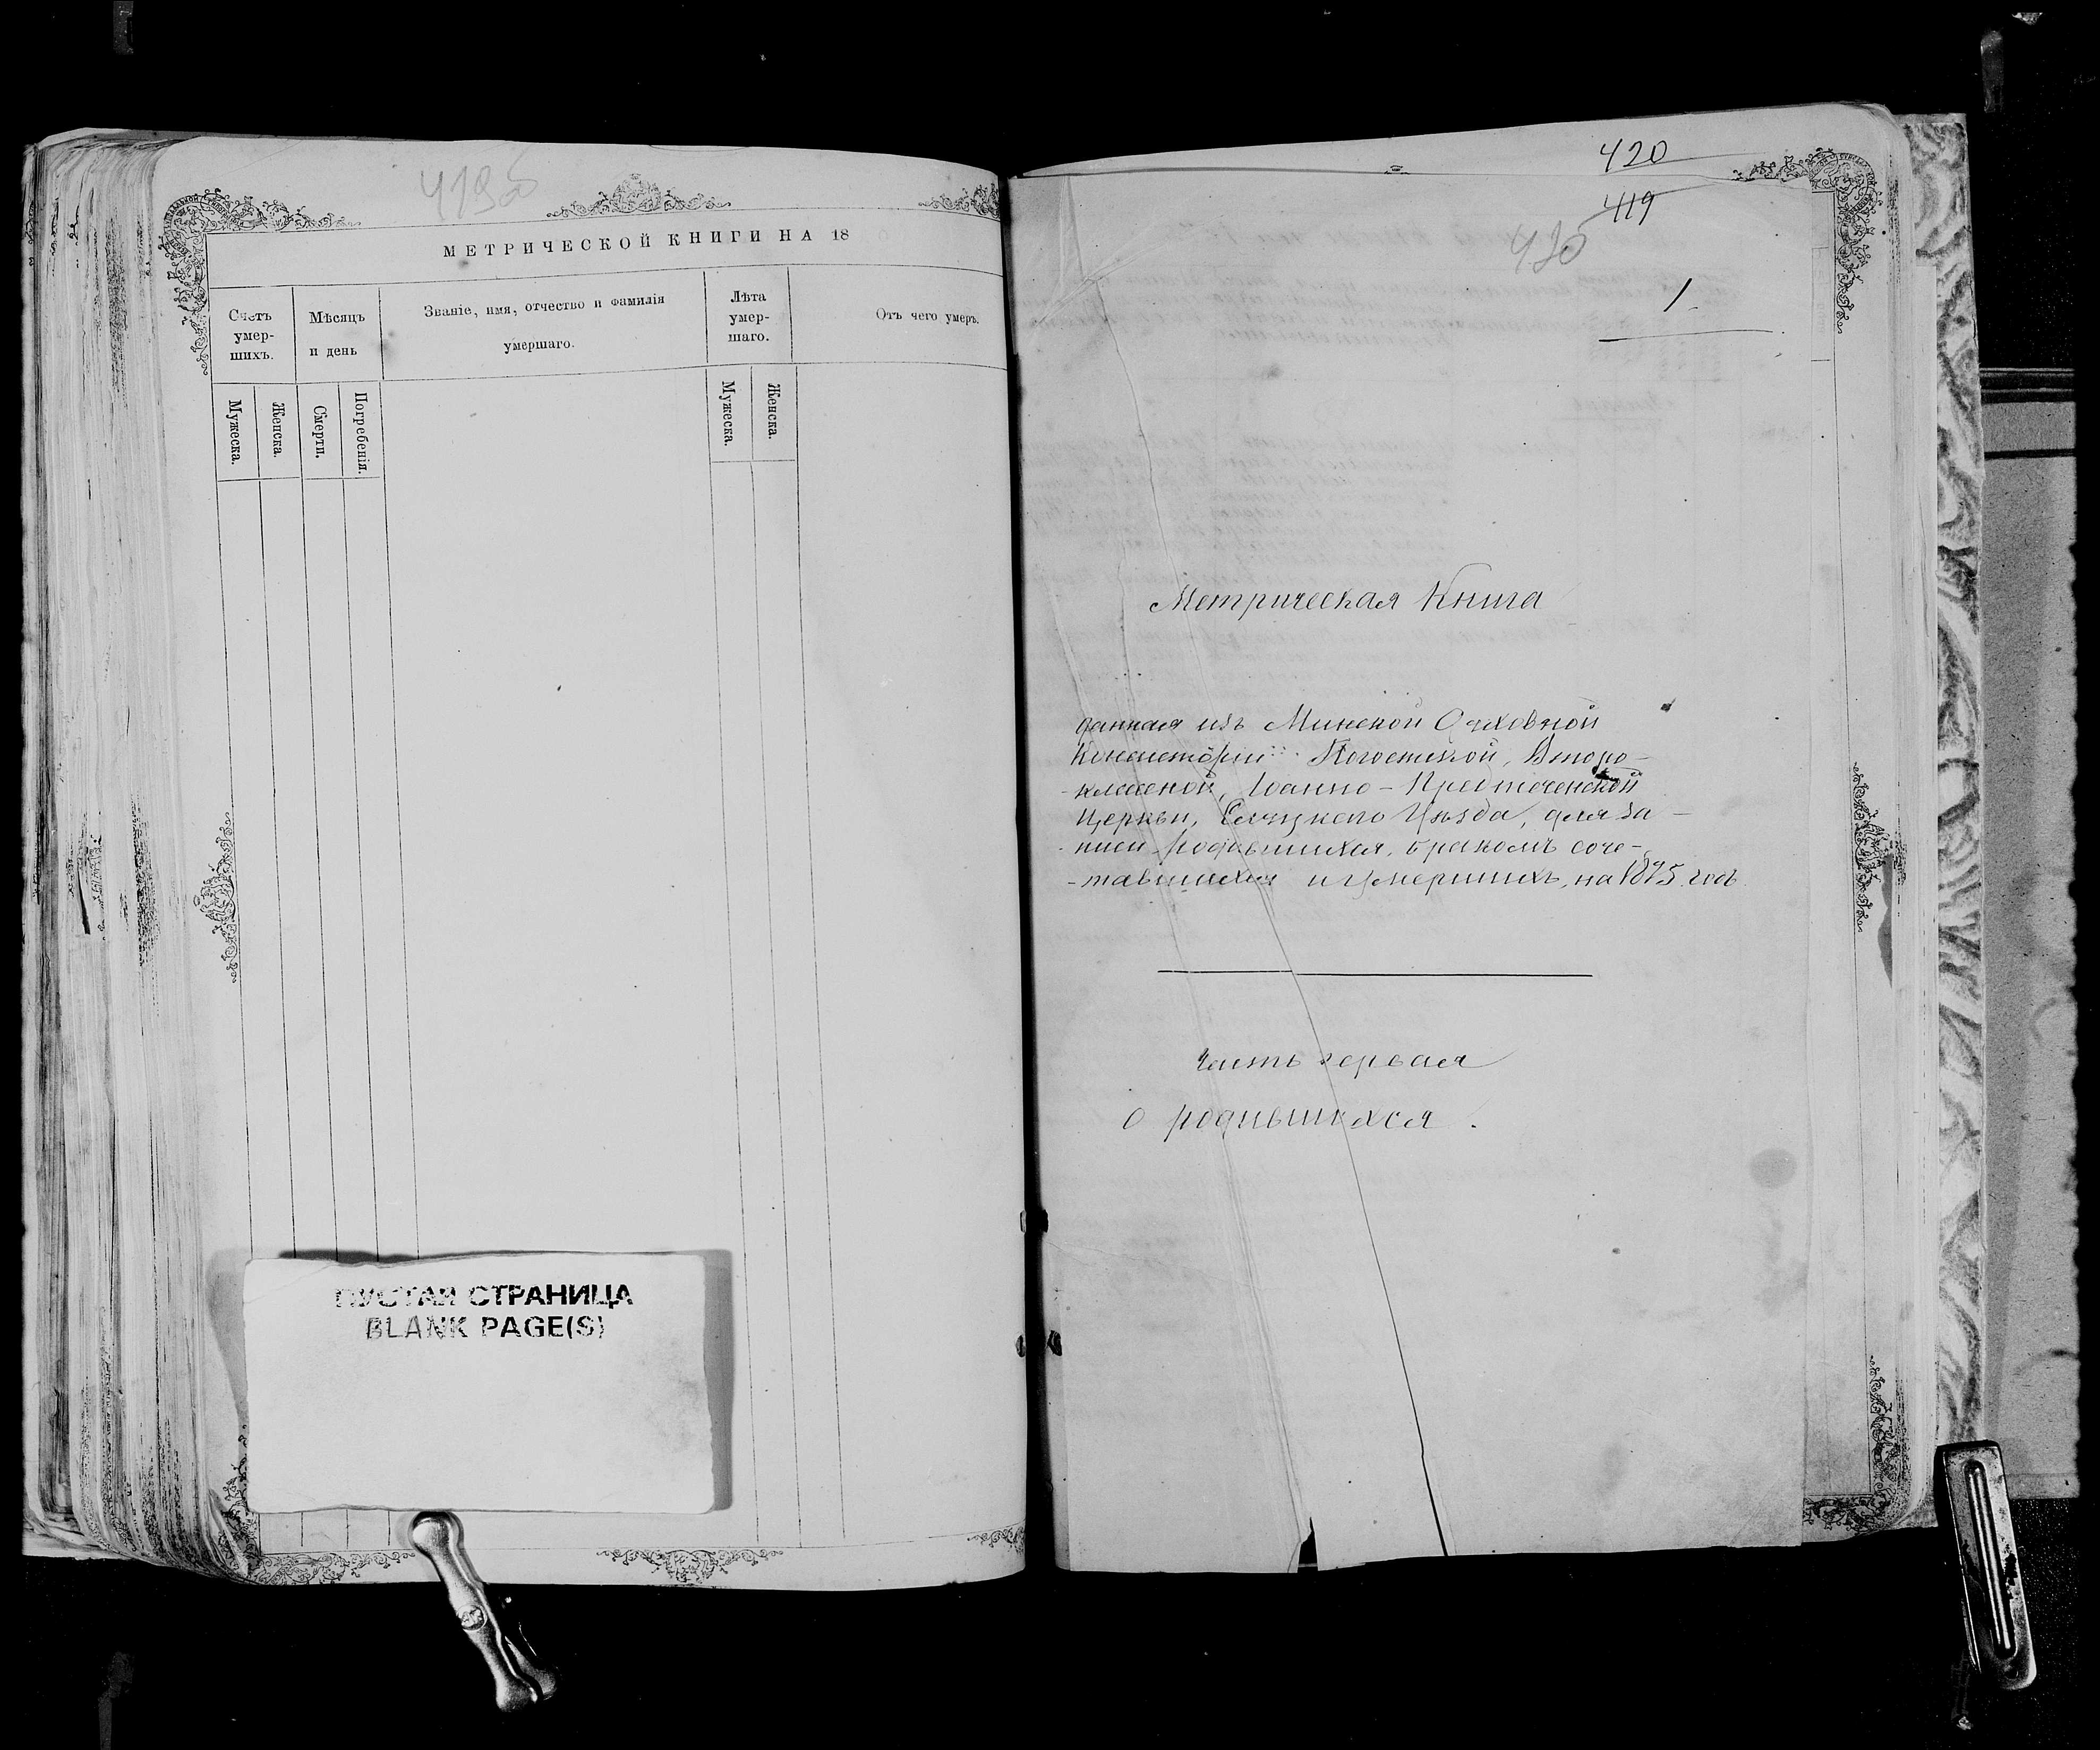 419об
МЕТРИЧЕСКОЙ КНИГИ НА 18
Счетъ умер-шихъ.
Мѣсяцъ и день
Званіе, имя, отчество и фамилія умершаго.
Лѣта умер-шаго.
Отъ чего умеръ.
Мужеска.
Женска.
Смерти.
Погребенія.
Мужеска.
Женска.
ПУСТАЯ СТРАНИЦА
BLANK PAGE(S)
420
419
420
1
Метрическая Книга
данная изъ Минской Духовной
Консисторіи Погостской, Второ-
-классной, Іоанно-Предтеченской
Церкви, Слуцкого Уѣзда, для за-
писи родившихся, бракомъ соче-
-тавшихся и умершихъ, на 1875 годъ
Часть первая
О родившихся.